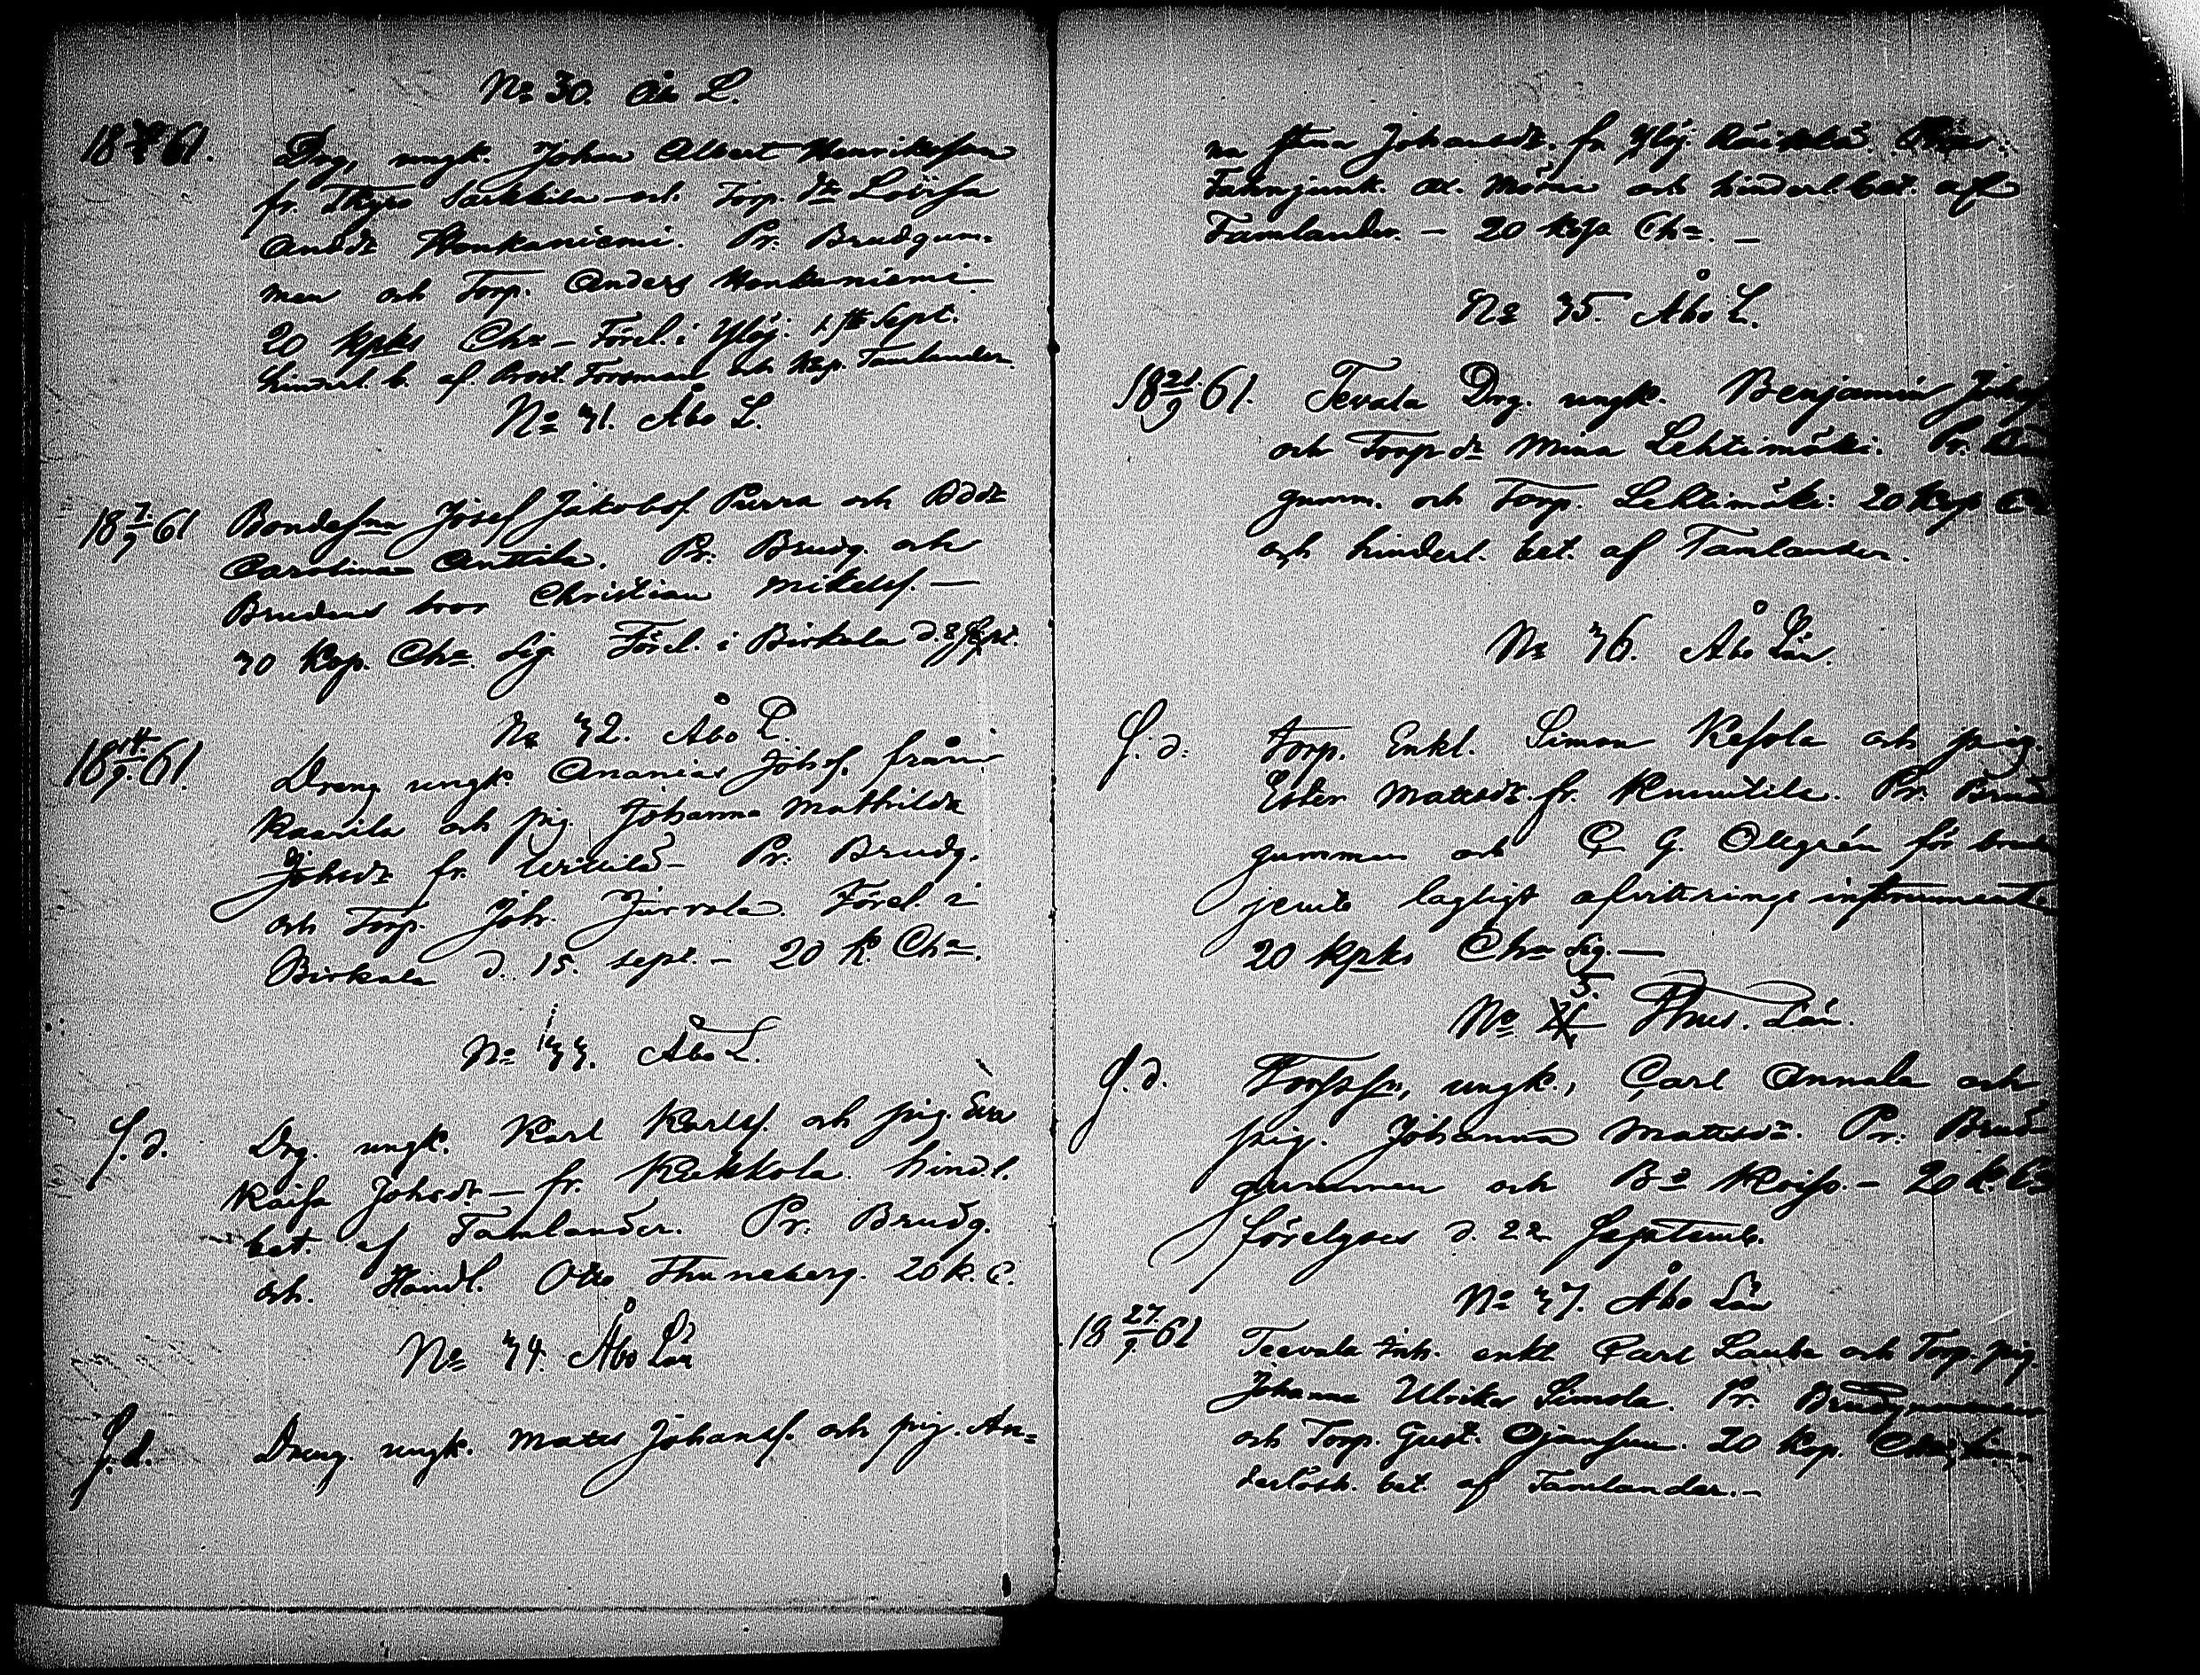 No 30. Åbo L.
18 61. Drg, ungk. Johan Albert Henriksson
fr. Thyrö Särkkilä och Torp. dr Lovisa
Andsdr Honkaniemi. Pr. Brudgum-
men och Torp. Anders Honkaniemi
20 kpks Cha – Förel. i Ylöj. 1 Sept.
hinderl. b. af. Prost. Forsman och Kap. Tamlander.
No 31. Åbo L.
18 7/9 61 Bondeson Josef Jakobs. Purra och Bddr
Carolina Anttila. Pr. Brudg. och
Brudens bror Christian Mikelss. –
30 Kop. Cha Sig. Förel. i Birkala d. 8 Sept.
No 32. Åbo L.
18 14/9 61. Dreng ungk. Ananias Johs. från
Kaarila och pig. Johanna Mathilda
Johsdr fr. Pr. Brudg.
och Torp. Joh. Jurvala. Förel i
Birkala d. 15. sept. – 20 k. Cha.
No 33. Åbo L.
S. d. Drg. ungk. Karl Karlss. och pig. Eva
Kaisa Johsdr – fr. Kukkola. hind.l.
bet. af Tamlander. Pr. Brudg.
och. Handl. Otto Thuneberg. 20 k. C.
No 34. Åbo Län
S. d. Dreng. ungk. Matts Johanss. och pig. An-
na Stina Johansdr. fr. Ylöj.
Fannjunk. Ad. Morin och hinderl. bet. af
Tamlander. – 20 kop Cha. –
No 35. Åbo L.
18 21/9 61. Tevala Drg. ungk. Benjamin Johs
och Torp dr Mina Lehtimäki. Pr.
gumm. och Torp. Lehtimäki: 20 kop
och hinderl. bet. af Tamlander.
No 36. Åbo Län.
S. d. Torp. Enkl. Simon Kesola och pig.
Ester Mattsdr. fr. Knuutila. Pr. Brud
gummen och C G. Ollgrén för brud
jemte lagligt afvittrings instrument
20 kpks Cha Sig. –
No 5. Thus. Län.
S. d. Torpson, ungk., Carl Annala och
pig. Johanna Mattsdr. Pr. Brud
gummen och Bo – 20 k. Ca
förelyses d. 22 Septemb.
No 37. Åbo Län
18 27/9 61 Teevala Inh. enkl. Carl Lauha och Torp. pig.
Johanna Ulrika Simola. Pr. Brudgummen
och Torp. Gust. 20 kop. hin
derlösh. bet. af Tamlander. –